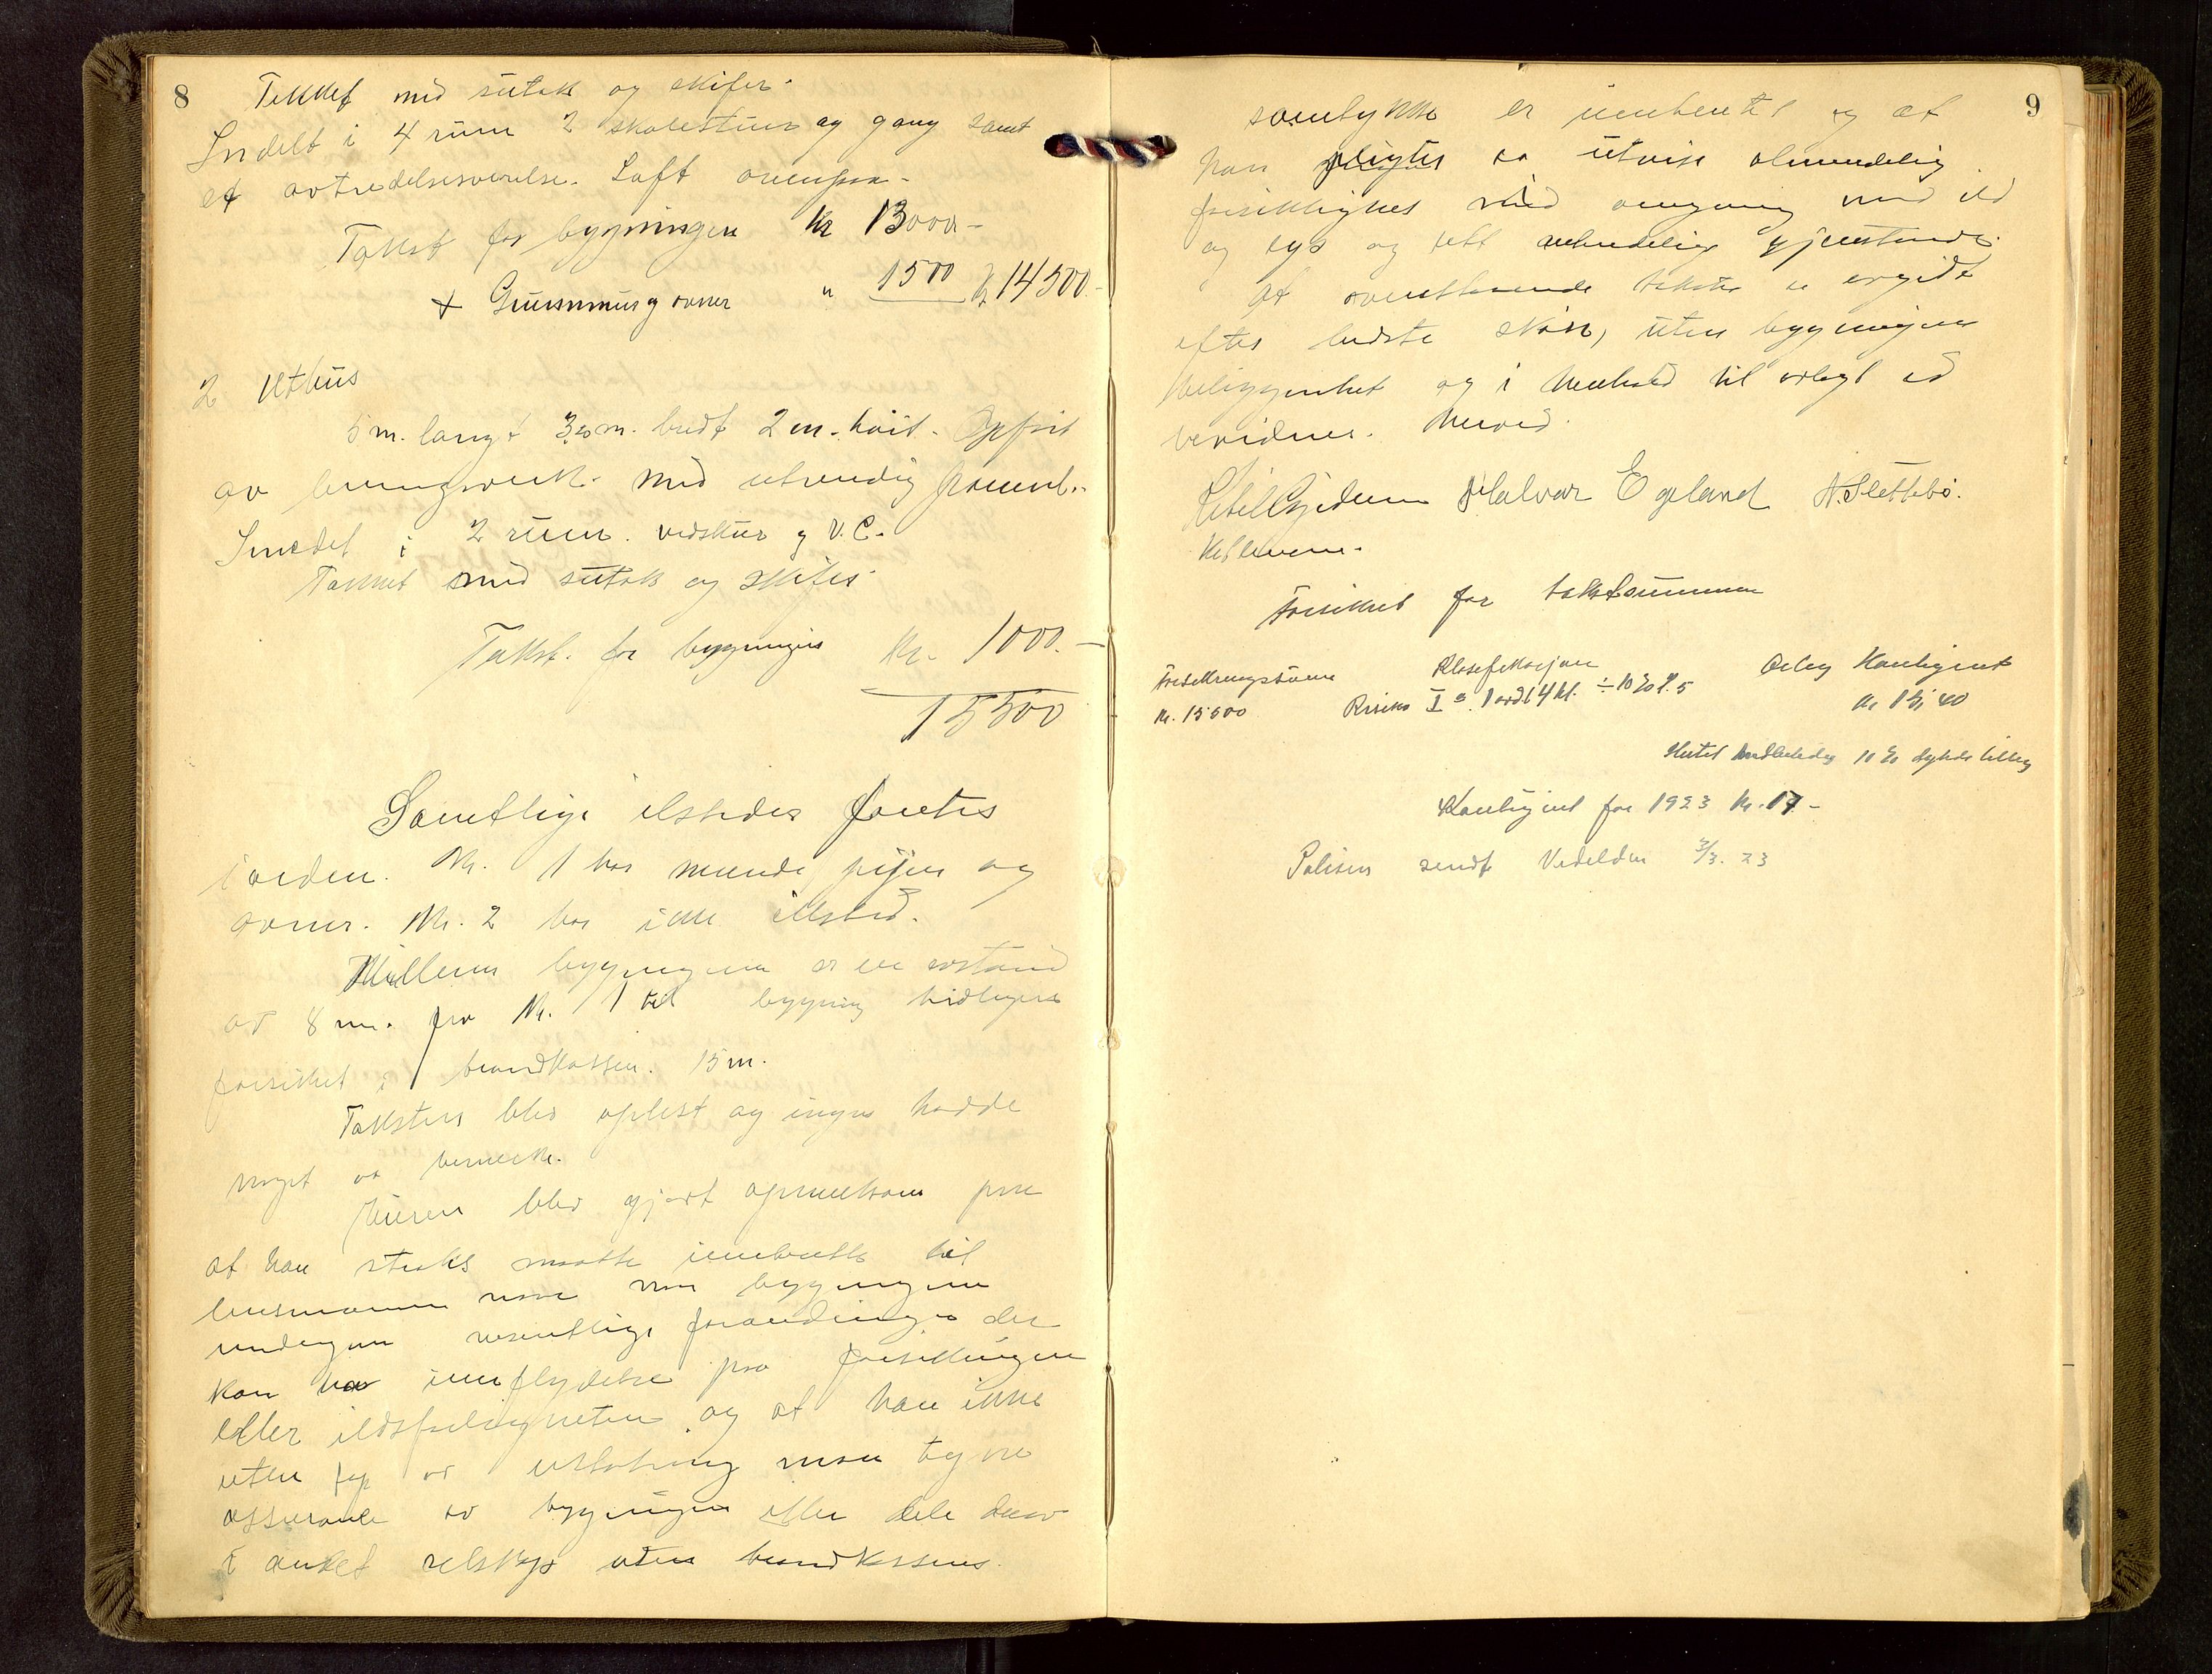 8
Tekket med sutak og skifer.
Indelt i 4 rum 2 skolestuer og gang samt
et avtrædelsesværelse. Loft ovenpaa.
Takst for bygningen kr 13000-
+ Grunnmur og ovner " 1500 kr 14500.-
2 Uthus
5 m. langt 3,20 m. bredt 2 m. høit. Opført
av bindingsverk med utvendig panel.
Inredet i 2 rum. vedskur og V.C.
Tekket med sutak og skifer
Takst. for bygningen kr. 1000.-
15500
Samtlige ilsteder fantes
i orden. Nr. 1 har murede piper og
ovner. Nr. 2 har ikke illsted.
Mellem bygningene er en avstand
av 8 m. fra Nr. 1 til bygning tidligere
forsikret i brandkassen. 15 m.
Taksten blev oplest og ingen hadde
noget at bemerke.
Eieren blev gjort opmerksom paa
at han straks maatte innberette til
lensmannen naar bygningene
undergaar vesentlige forandringer der
kan ha innflydelse paa forsikringen
eller ildsfarligheten og at han ikke
uten tap av erstatning maa tegne
assurance av bygningen eller dele derav
i andet selskap uten brandkassens
9
samtykke er innhentet og at
han pligter at utvise almindelig
forsiktighet med omgang med ild
og lys og lett antendelige gjenstande.
At ovenstaaende takster er avgidt
efter bedste skjøn, uten bygningens
beliggenhet og i henhold til avlagt ed
bevidnes. Herved.
Halvar Egeland N. Slettebø.
Forsikret for takstsummen
Forsikringssum Klasefikasjon Aarlig Kontingent
kr. 15500 Risiko I a. 1 ord. 4 kl. ÷ 10 % P. 5 kr 15,40
10 % tillæg
Kontingent for 1923 kr. 17 -
Polisen sendt Vedelden 3/3. 23